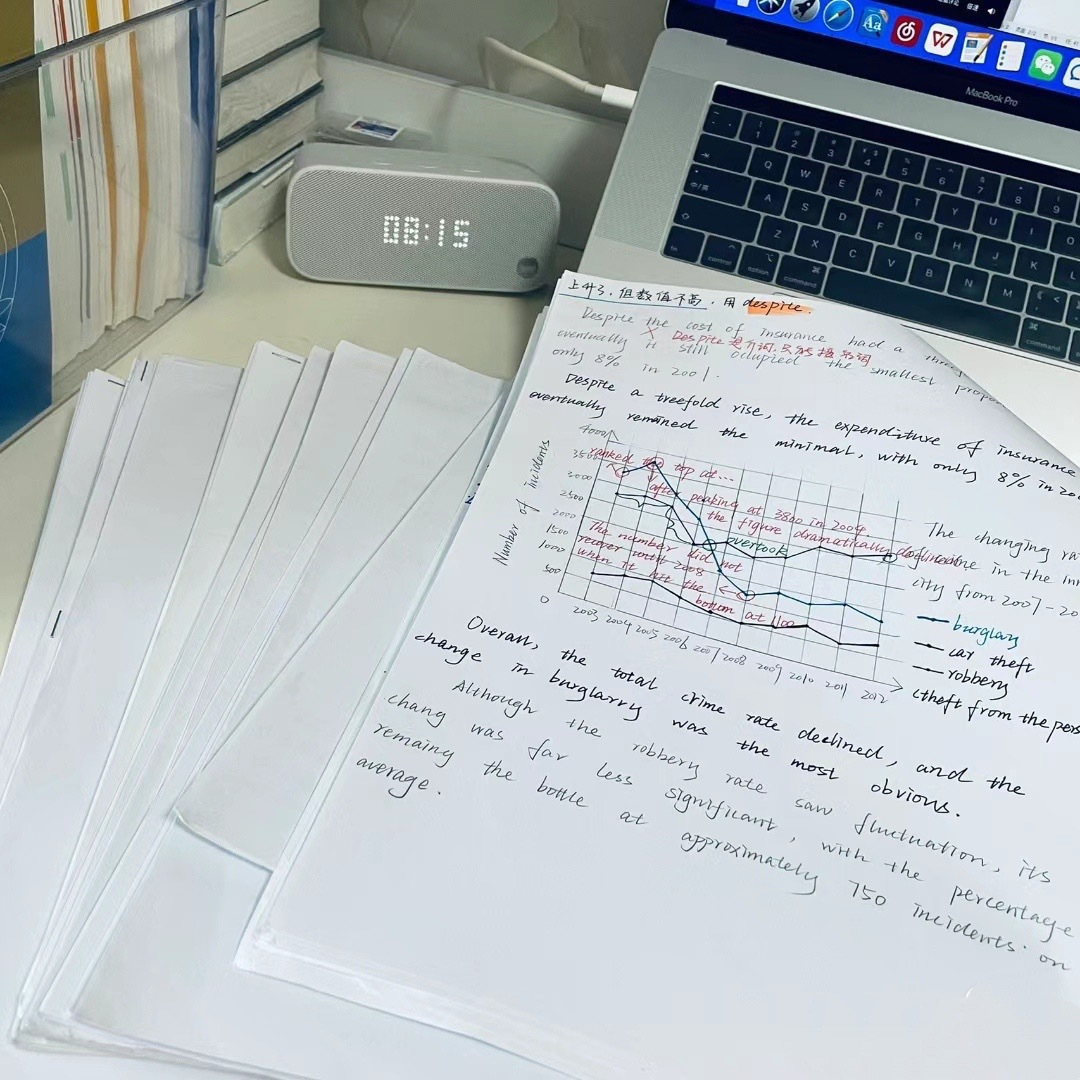 MacBook Pro
08:15
上升3,但数值不高,用 despite.
Despite the cost of insurance had a
X Despite是介词,只能接名词
eventually it still ocupied the smallest
only 8% in 2001.
Despite a treefold rise, the expenditure of insurance
eventually remained the minimal, with only 8% in
Number of incidents
4000
3500
3000
2500
2000
1500
1000
500
0
ranked the top at...
after peaking at 3800 in 2004
the figure dramatically declined
The number did not
recover until 2008
when it hit the
bottom at 100
overtook
2003 2004 2005 2006 2007 2008 2009 2010 2011 2012
The changing
in the
city from 2007-20
burglary
car theft
robbery
(theft from the
Overall, the total crime rate declined, and the
change in burglarry was the most obvious.
Although the robbery rate saw fluctuation, its
chang was far less significant, with the percentage
remaing the bottle at approximately 750 incidents on
average.